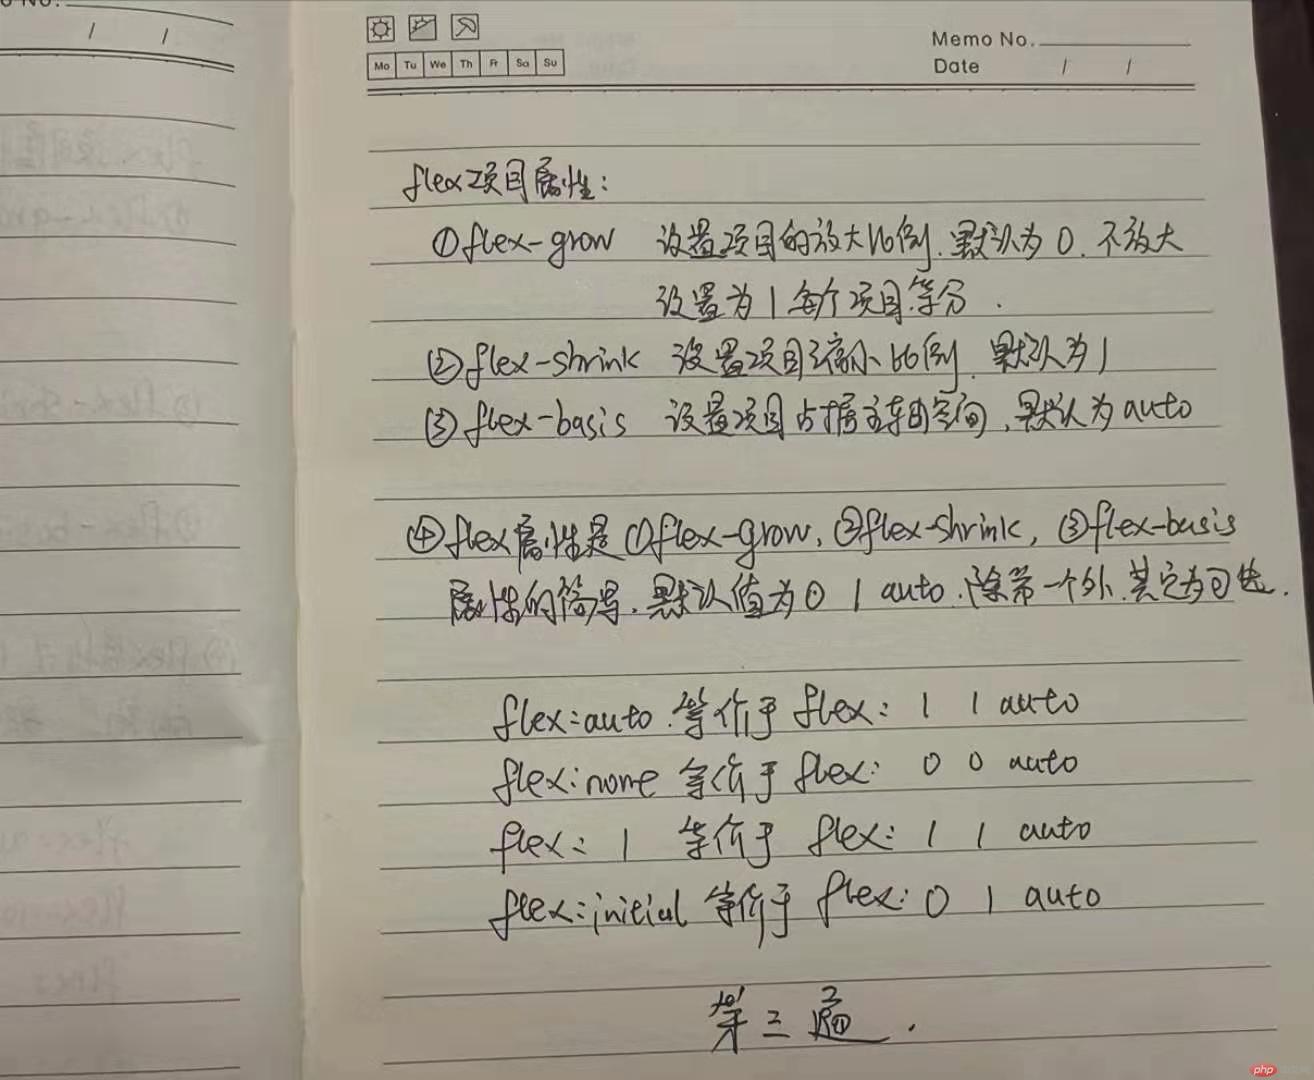 Mo Tu We Th Fr Sa Su
Memo No.
Date / /
flex项目属性:
①flex-grow 设置项目的放大比例.默认为0.不放大
设置为1每个项目等分.
②flex-shrink 设置项目缩小比例.默认为1
③flex-basis 设置项目占据主轴的空间,默认为auto
④flex属性是①flex-grow,②flex-shrink,③flex-basis
属性的简写.默认值为0 1 auto.除第一个外.其它为可选.
flex:auto.等价于flex: 1 1 auto
flex:none 等价于flex: 0 0 auto
flex: 1 等价于 flex: 1 1 auto
flex:initial 等价于 flex: 0 1 auto
第三遍.
php